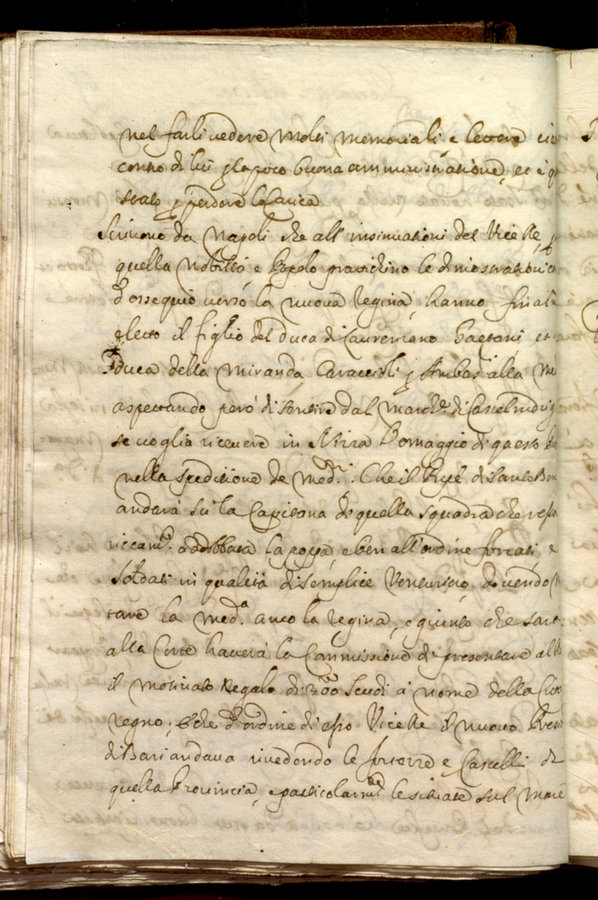 nel farli vedere molti memoriali, e lettere
contro di lui p la poco buona amministratione, et è
stato p perdere la Carica
Scrivono da Napoli che all' insinuationi del Vice Re,
quella Nobiltà, e Popolo gravidino le dimostrationi
d'ossequio verso la nuova Regina, hanno
eletto il figlio del Duca di Laurenzano Gaetani, et
Duca della Miranda Caraccioli p Ambas. alla
aspettando però di sentire dal March.e di
se voglia ricevere in Nizza l'omaggio di questo
nella speditione de med.i. Che il di Santo
andarà sù la Capitana di quella squadra che resta
riccam.e addobbata la poppa, e ben all'ordine forzati, e
soldati in qualità di semplice Venturiero, dovendo
tare la med.a anco la Regina, e giunto che sarà
alla Corte haverà la Commissione di presentare
il motivato Regalo di 300 scudi à nome della
regno; e che d'ordine di esso Vice Re il nuovo
di Bari andava rivedendo le fortezze e Castelli di
quella Provincia, e particolarm.te le situate sul mare